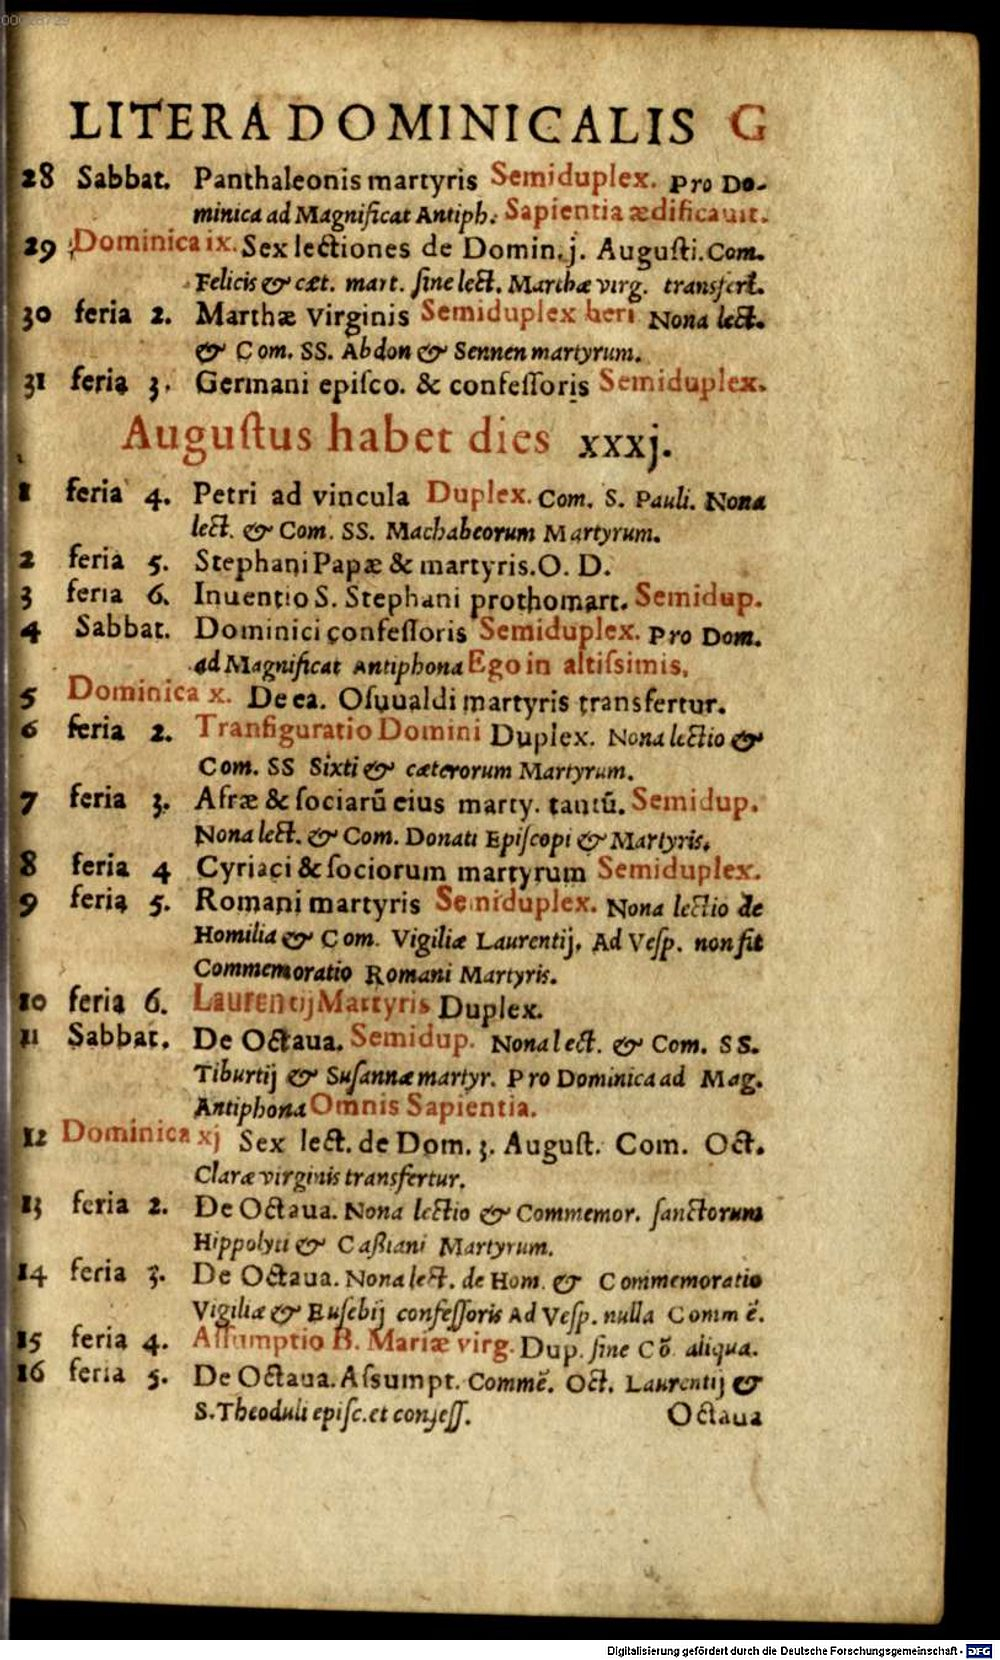 LITERA DOMINICALIS G
28 Sabbat. Panthaleonis martyris Semiduplex. Pro Do-
minica ad Magnificat Antiph. Sapientia ædificauit.
29 Dominica ix. Sex lectiones de Domin. j. Auguſti. Com.
Felicis & cæt. mart. ſine lect. Marthæ virg. transfert.
30 feria 2. Marthæ Virginis Semiduplex heri Nona lect.
& Com. SS. Abdon & Sennen martyrum.
31 feria 3. Germani epiſco. & confeſſoris Semiduplex.
Auguſtus habet dies xxxj.
1 feria 4. Petri ad vincula Duplex. Com. S. Pauli. Nona
lect. & Com. SS. Machabeorum Martyrum.
2 feria 5. Stephani Papæ & martyris. O. D.
3 feria 6. Inuentio S. Stephani prothomart. Semidup.
4 Sabbat. Dominici confeſſoris Semiduplex. Pro Dom.
ad Magnificat Antiphona Ego in altiſsimis.
5 Dominica x. De ea. Oſuualdi martyris transfertur.
6 feria 2. Tranfiguratio Domini Duplex. Nona lectio &
Com. SS Sixti & cæterorum Martyrum.
7 feria 3. Afræ & ſociarū eius marty. tantū. Semidup.
Nona lect. & Com. Donati Epiſcopi & Martyris.
8 feria 4 Cyriaci & ſociorum martyrum Semiduplex.
9 feria 5. Romani martyris Semiduplex. Nona lectio de
Homilia & Com. Vigiliæ Laurentij. Ad Veſp. non fit
Commemoratio Romani Martyris.
10 feria 6. Laurentij Martyris Duplex.
11 Sabbat. De Octaua. Semidup. Nona lect. & Com. SS.
Tiburtij & Suſannæ martyr. Pro Dominica ad Mag.
Antiphona Omnis Sapientia.
12 Dominica xj Sex lect. de Dom. 3. Auguſt. Com. Oct.
Claræ virginis transfertur.
13 feria 2. De Octaua. Nona lectio & Commemor. ſanctorum
Hippolyti & Caſsiani Martyrum.
14 feria 3. De Octaua. Nona lect. de Hom. & Commemoratio
Vigiliæ & Euſebij confeſſoris Ad Veſp. nulla Comm ē.
15 feria 4. Aſſumptio B. Mariæ virg. Dup. ſine Cō. aliqua.
16 feria 5. De Octaua. Aſsumpt. Commē. Oct. Laurentij &
S. Theoduli epiſc. et confeſſ. Octaua
Digitalisierung gefördert durch die Deutsche Forschungsgemeinschaft - DFG